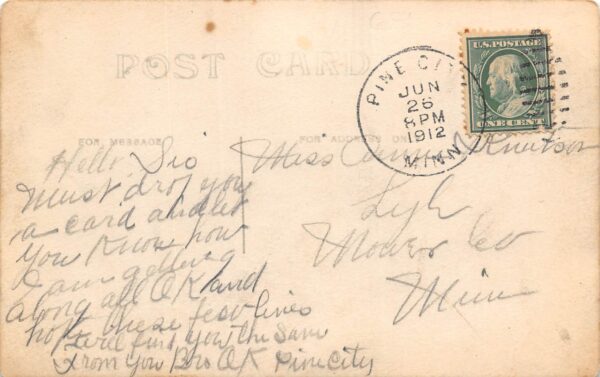 POST CARD
PINE CITY
JUN
26
8 PM
1912
MINN
U.S. POSTAGE
ONE CENT
FOR MESSAGE
FOR ADDRESS ONLY
Hello Sis
Must drop you
a card and let
you know how
I am getting
along all OK and
hope these few lines
will find you the same
From you Bro OK Pine City
Miss Knutson
Lyle
Mower Co
Minn